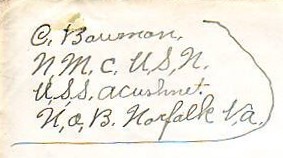 C. Bowman,
N.M.C. U.S.N.
U.S.S. Acushnet.
N.O.B. Norfolk Va.